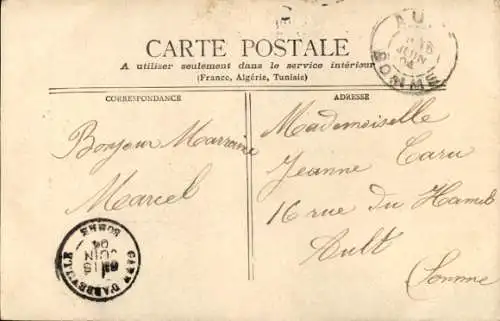 CARTE POSTALE
A utiliser seulement dans le service intérieur
(France, Algérie, Tunisie)
CORRESPONDANCE
ADRESSE
Bonjour Marraine
Marcel
Mademoiselle
Jeanne Caru
16 rue du Hamel
Ault
(Somme
AU
16
JUIN
04
SOMME
GARE D'ABBEVILLE
16
JUIN
04
SOMME